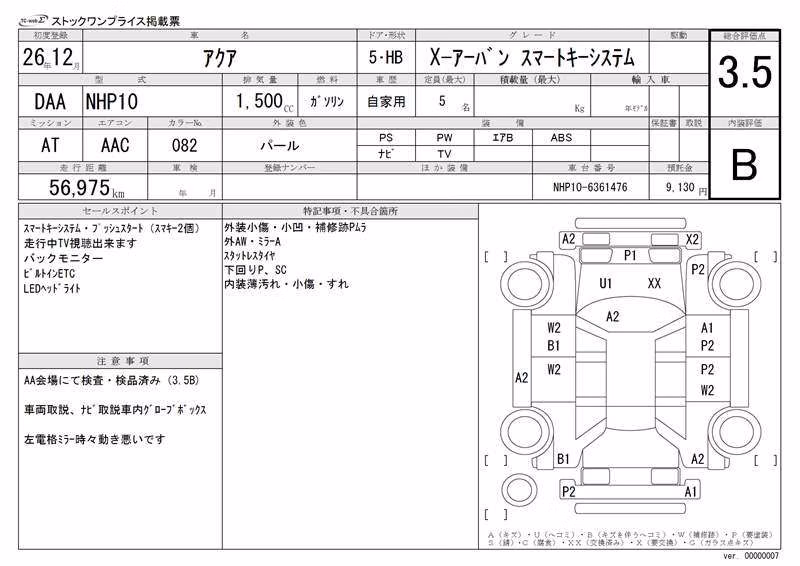 TC-webΣ ストックワンプライス掲載票
初度登録 車名 ドア・形状 グレード 駆動 総合評価点
26年12月 アクア 5・HB X-アーバン スマートキーシステム 3.5
型式 排気量 燃料 車歴 定員(最大) 積載量(最大) 輸入車
DAA NHP10 1,500CC ガソリン 自家用 5名 Kg 年モデル
ミッション エアコン カラーNo. 外装色 装備 保証書 取説 内装評価
AT AAC 082 パール PS PW エアB ABS B
ナビ TV
走行距離 車検 登録ナンバー ほか装備 車台番号 預託金
56,975km 年 月 NHP10-6361476 9,130円
セールスポイント
スマートキーシステム・プッシュスタート (スマキー2個)
走行中TV視聴出来ます
バックモニター
ビルトインETC
LEDヘッドライト
注意事項
AA会場にて検査・検品済み (3.5B)
車両取説、ナビ取説車内グローブボックス
左電格ミラー時々動き悪いです
特記事項・不具合箇所
外装小傷・小凹・補修跡Pムラ
外AW・ミラーA
スタットレスタイヤ
下回りP、SC
内装薄汚れ・小傷・すれ
A2 X2
[ ] P1 [ ]
P2
U1 XX
A2
W2 A1
B1 P2
W2 P2
A2 W2
[ ] B1 A2 [ ]
P2 A1
[ ]
A(キズ)・U(ヘコミ)・B(キズを伴うヘコミ)・W(補修跡)・P(要塗装)
S(錆)・C(腐食)・XX(交換済み)・X(要交換)・G(ガラス点キズ)
ver. 00000007